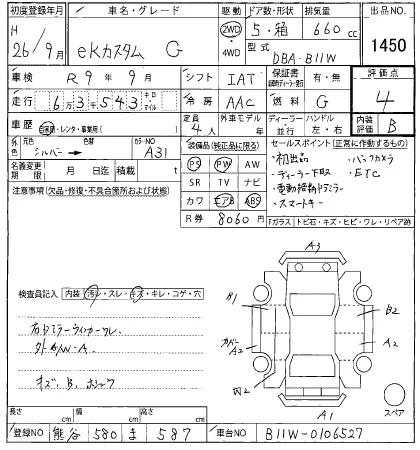 初度登録年月 車名・グレード 駆動 ドア数・形状 排気量 出品NO.
H 26/9月 eKカスタム G 2WD ・ 4WD 5・箱 660 cc 1450
型式 DBA-B11W
車検 R9年9月 シフト IAT 保証書 有・無 評価点
走行 6万3千543 キロ マイル 冷房 AAC 燃料 G 4
車歴 自家用・レンタ・事務用( ) 定員 4人 外車モデル 年 ディーラー 並行 ハンドル 左・右 内装 B
外色 元色 シルバー 色替 カラーNO A31
装備品(純正品に限る) セールスポイント(正常に作動するもの)
名義変更期限 月 日迄 積載 t
PS PW AW
SR TV ナビ
カワ エアB ABS
・初出品 ・バックカメラ
・ディーラー下取 ・ETC
・電動格納ドアミラー
・スマートキー
注意事項(欠品・修復・不具合箇所および状態)
R券 8060円
Fガラス トビ石・キズ・ヒビ・ワレ・リペア跡
検査員記入 内装 汚レ・スレ・キズ・キレ・コゲ・穴
右ドミラーウィンカーワレ
外
キズ、B、
A3
B1
B2
カバー A2
A2
2
A1
スペア
長さ cm 幅 cm 高さ cm
登録NO 熊谷 580 ま 587 車台NO B11W-0106527